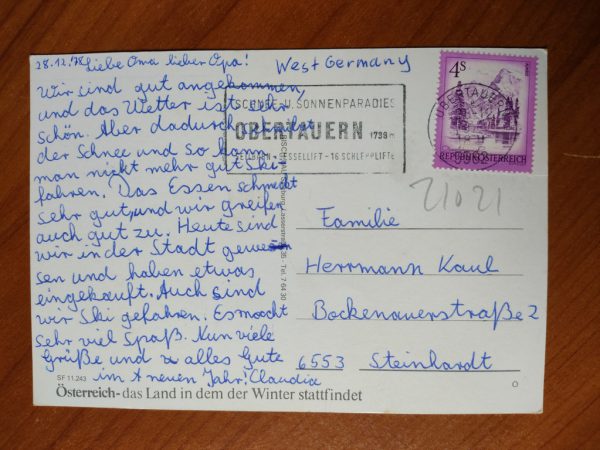 28.12.78 Liebe Oma lieber Opa!
Wir sind gut angekommen,
und das Wetter ist sehr
schön. Aber dadurch schmilzt
der Schnee und so kann
man nicht mehr gut Ski
fahren. Das Essen schmeckt
sehr gut, und wir greifen
auch gut zu. Heute sind
wir in der Stadt gewe
sen und haben etwas
eingekauft. Auch sind
wir Ski gefahren. Es moocht
sehr viel Spaß. Nun viele
Grüße und alles Gute
im neuen Jahr! Claudia
West Germany
SCHNEE- U. SONNENPARADIES
OBERTAUERN 1738 m
SEILBAHN - SESSELLIFT - 16 SCHLEPPLIFTE
4S
REPUBLIK ÖSTERREICH
OBERTAUERN
5562
21021
Familie
Herrmann Kaul
Bockenauerstraße 2
6553 Steinhardt
Tel. 7 64 30
SF 11.243
Ö
Österreich - das Land in dem der Winter stattfindet